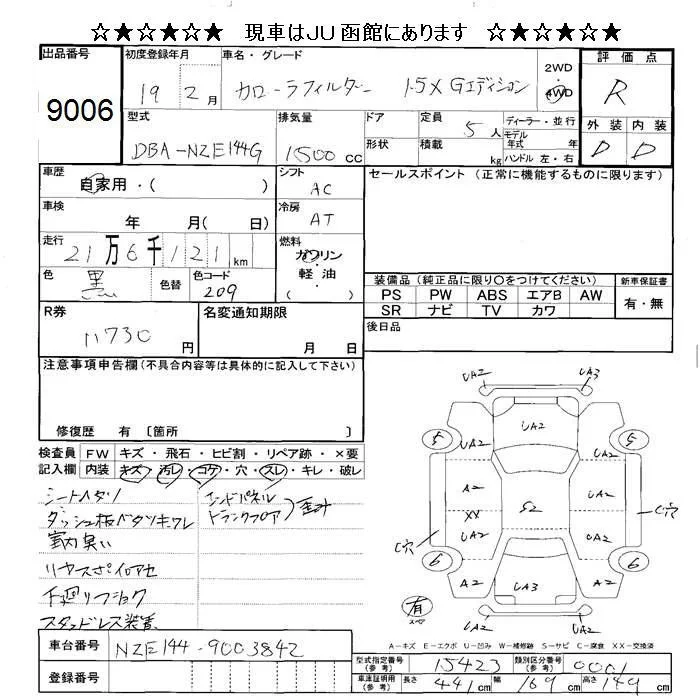 ☆★☆★☆★ 現車はJU函館にあります ☆★☆★☆★
出品番号
9006
初度登録年月
19 2月
車名・グレード
カローラフィルダー 1.5X Gエディション
2WD
4WD
評価点
R
外装 内装
D D
型式
DBA-NZE144G
排気量
1500cc
ドア
形状
定員
5人
積載
kg
ディーラー・並行
モデル
年式 年
ハンドル 左・右
車歴
自家用・( )
車検
年 月( 日)
走行
21万6千121km
色
黒
色替
色コード
209
シフト
AC
冷房
AT
燃料
ガソリン
・
軽油
( )
セールスポイント (正常に機能するものに限ります)
装備品 (純正品に限り○をつけてください)
PS PW ABS エアB AW
SR ナビ TV カワ
新車保証書
有・無
後日品
R券
11730円
名変通知期限
月 日
注意事項申告欄(不具合内容等は具体的に記入して下さい)
修復歴 有 〔箇所 〕
検査員
記入欄
FW キズ・飛石・ヒビ割・リペア跡・×要
内装 キズ・汚レ・コゲ・穴・スレ・キレ・破レ
シートヘタリ
ダッシュ板ベタツキワレ
室内臭い
リヤースポイロアセ
下廻リフショク
スタッドレス装着
エンドパネル
トランクフロア
歪み
UA2 UA3
UA2
5 5
UA2 UA2
A2 A2
XX
S2
UA2 UA2
C穴 C穴
6 6
A2 A2
UA3
有
スペア
UA2 UA2
A-キズ E-エクボ U-凹み W-補修跡 S-サビ C-腐食 XX-交換済
車台番号
NZE144-9003842
登録番号
型式指定番号
(参考)
15423
類別区分番号
(参考)
0001
車庫証明用
(参考)
長さ 441cm 幅 169cm 高さ 149cm